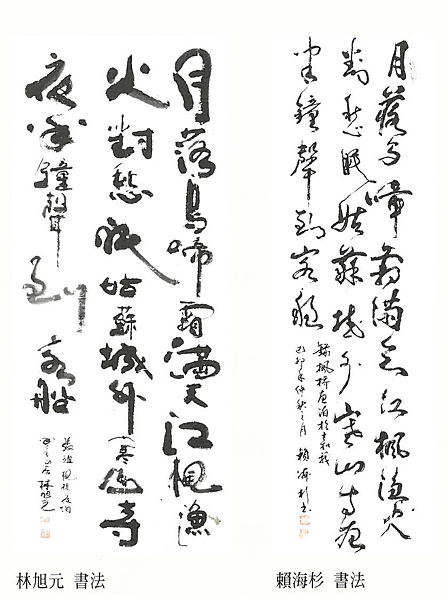 月落烏啼霜滿天江楓漁火
對愁眠姑蘇城外寒山寺夜
半鐘聲到客船
錄楓橋夜泊於嘉義
己卯年仲秋之月 賴海杉書
月落烏啼霜滿天江楓漁
火對愁眠姑蘇城外寒山寺
夜半鐘聲到客船
張繼楓橋夜泊
林旭元
林旭元 書法
賴海杉 書法